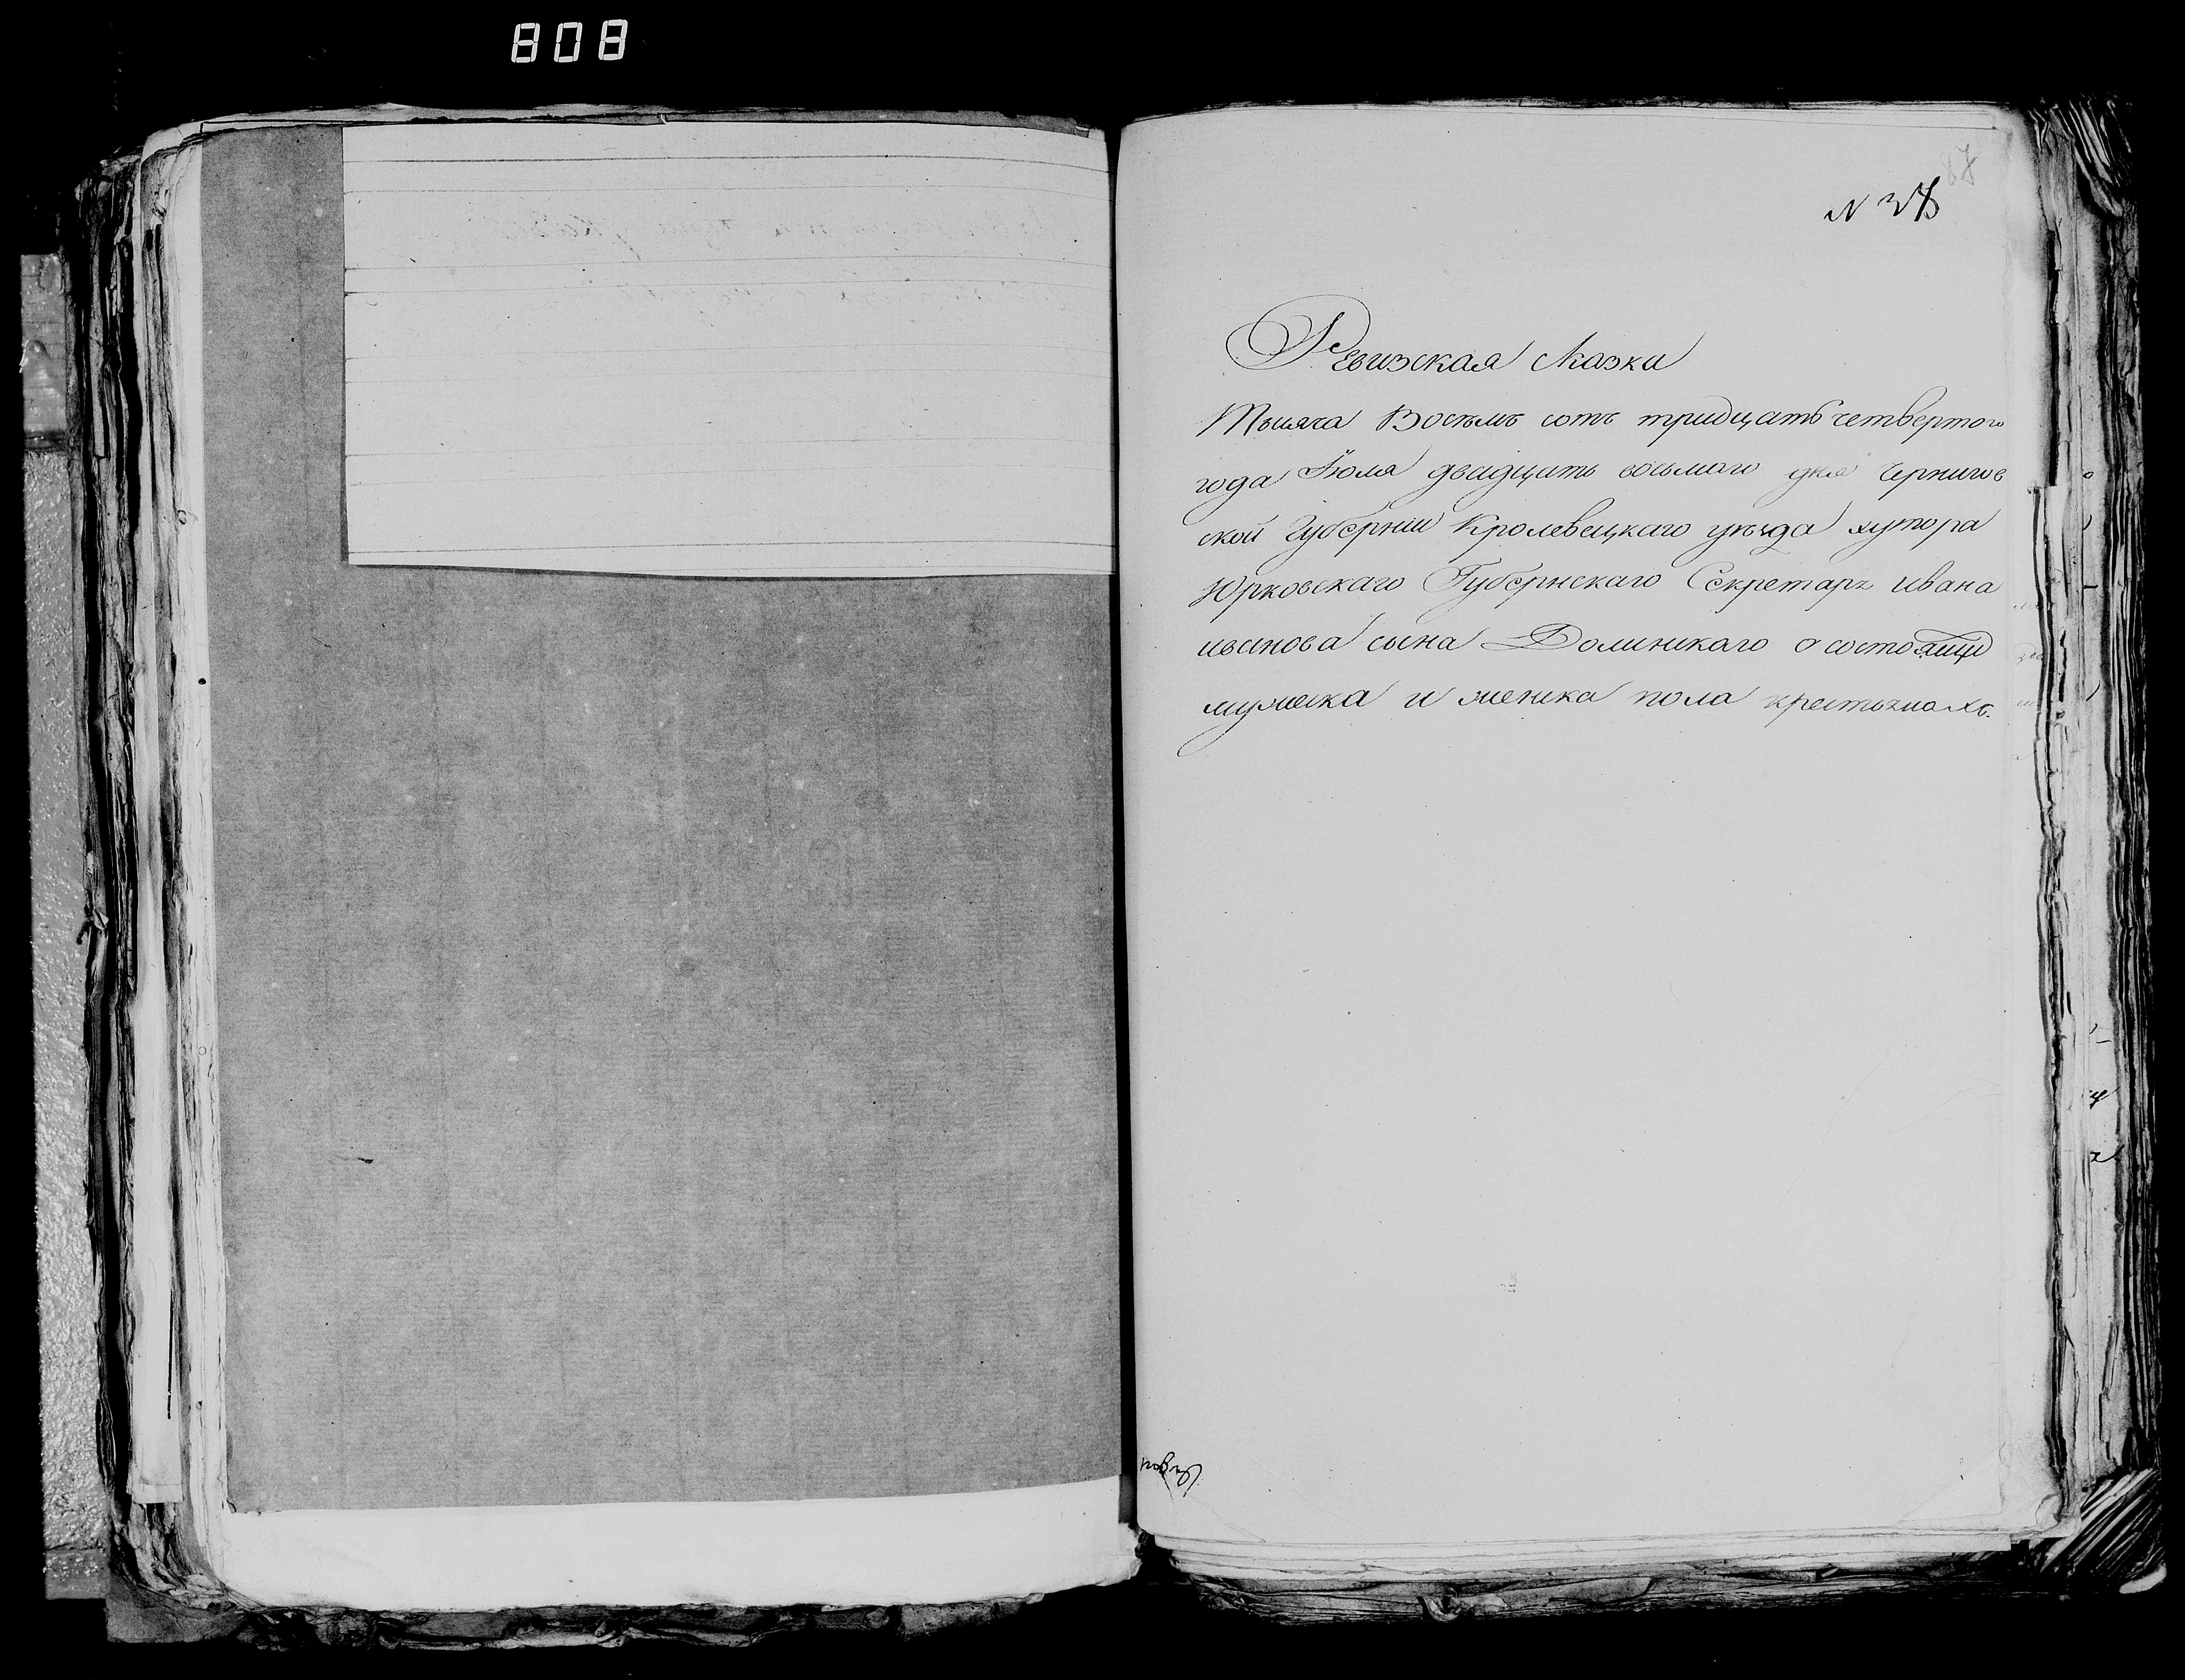 808
87
N 37
Ревизская Сказка
Тысяча Восемъ сотъ тридцать четвертого
года Іюля двадцать восьмаго дня Чернигов
ской Губерніи Кролевецкаго уѣзда хутора
Юрковскаго Губернскаго Секретаря Ивана
иванова сына Долинскаго о состоящи
мужеска и женска пола крестьянахъ.